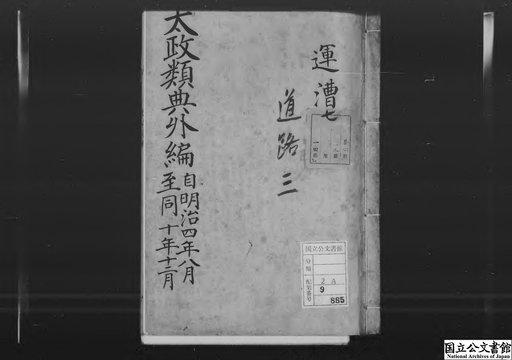 運漕七
道路三
太政類典外編
自明治四年八月
至同十年十二月
国立公文書館
分類
配架番号
2A
9
885
国立公文書館
National Archives of Japan